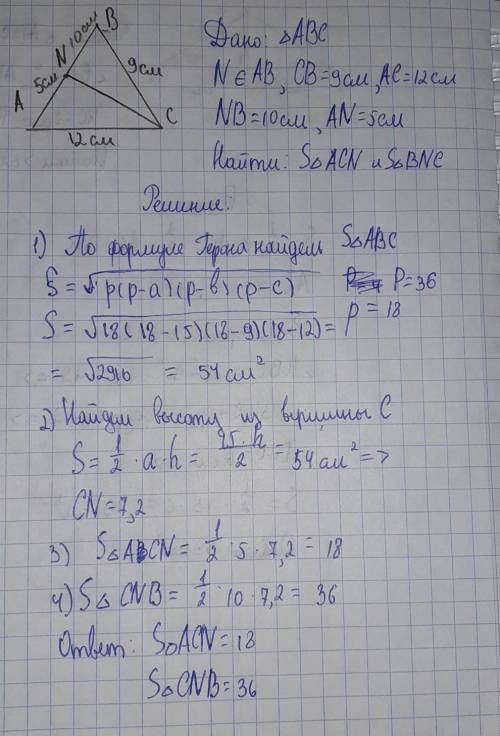 B
10см
N
5см
9см
A
C
12см
Дано: △ABC
N∈AB, CB=9см, AC=12см
NB=10см, AN=5см
Найти: S△ACN и S△BNC
Решение:
1) По формуле Герона найдем S△ABC
S=√p(p-a)(p-b)(p-c) P=36
S=√18(18-15)(18-9)(18-12)= p=18
=√2916 = 54см²
2) Найдем высоту из вершины C
S=1/2·a·h=15·h/2=54см²=>
CN=7,2
3) S△ACN=1/2·5·7,2=18
4) S△CNB=1/2·10·7,2=36
Ответ: S△ACN=18
S△CNB=36